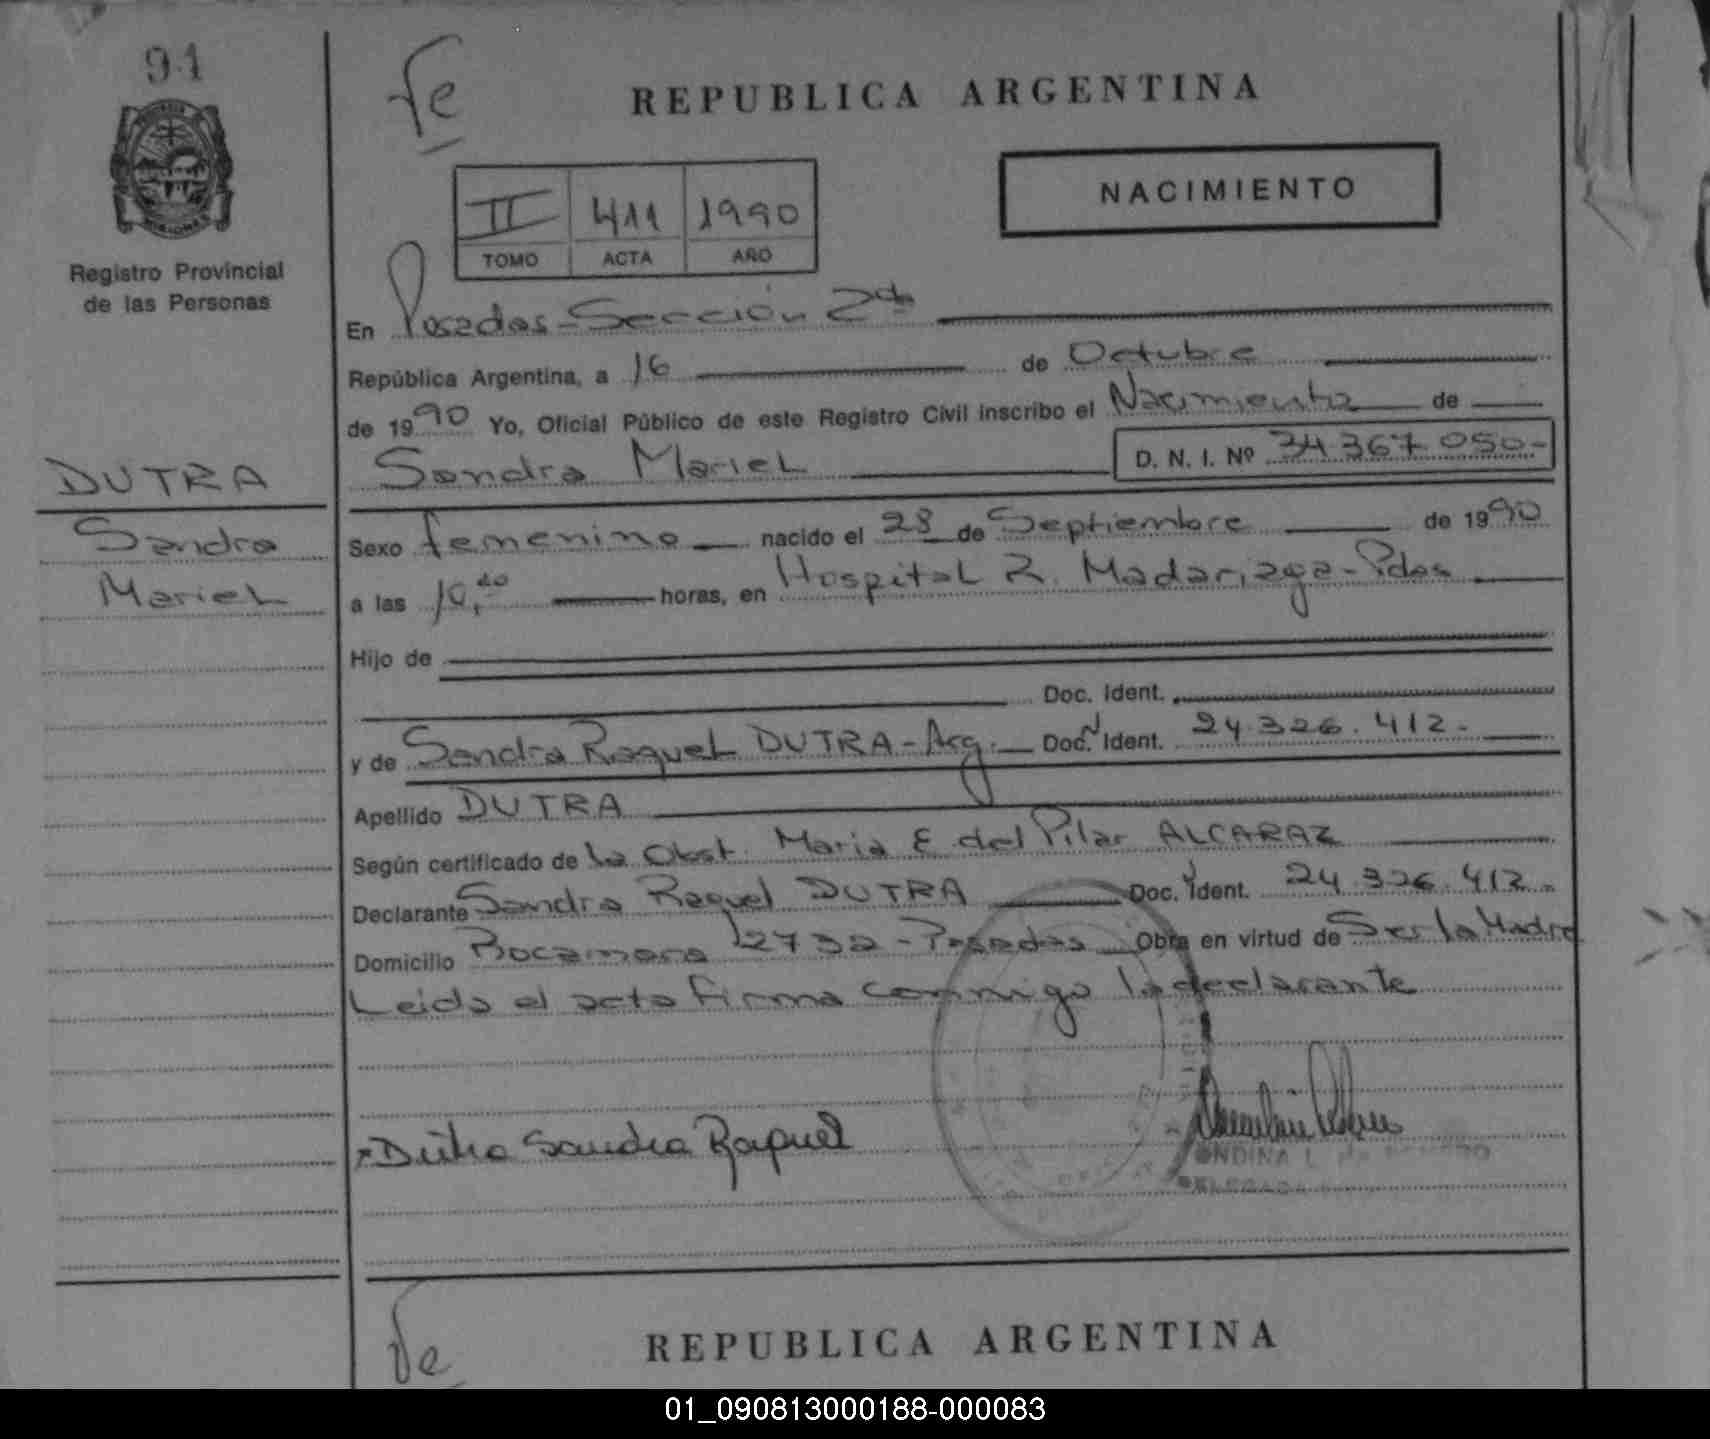 91
Fe
REPUBLICA ARGENTINA
NACIMIENTO
II 411 1990
TOMO ACTA AÑO
Registro Provincial
de las Personas
En Posadas-Sección 2da
República Argentina, a 16 de Octubre
de 1990 Yo, Oficial Público de este Registro Civil inscribo el Nacimiento de
Sandra Mariel D. N. I. Nº 34.367.050-
DUTRA
Sandra
Mariel
Sexo femenino nacido el 28 de Septiembre de 1990
a las horas, en Hospital R. Madariaga-Pdas
Hijo de
Doc. Ident.
y de Sandra Raquel DUTRA-Arg. Doc. Ident. 24.326.412-
Apellido DUTRA
Según certificado de la Obst. Maria E del Pilar ALCARAZ
Declarante Sandra Raquel DUTRA Doc. Ident. 24.326.412-
Domicilio Rocamora 2732-Posadas Obra en virtud de Ser la Madre
Leida el acta firma conmigo la declarante
Dutra Sandra Raquel
ONDINA L. de
DELEGADA
Fe
REPUBLICA ARGENTINA
01_090813000188-000083